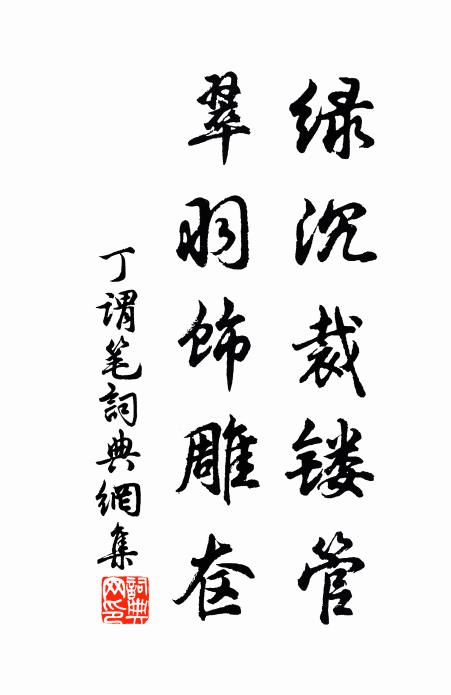 绿沉裁镂管
翠羽饰雕奁
丁谓笔詞典網集
詞典
网印